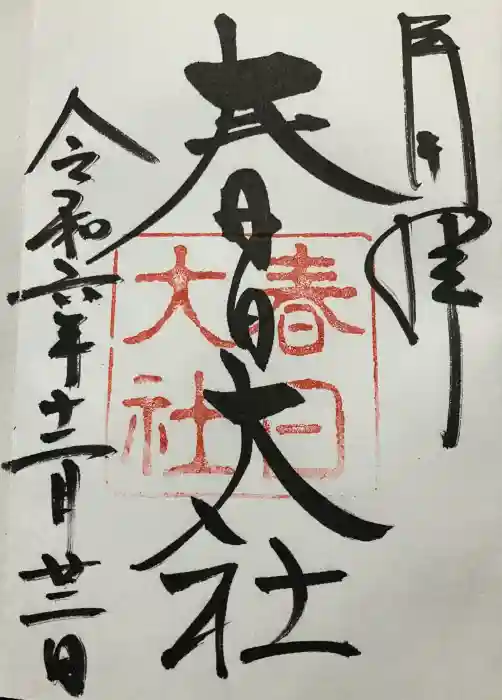 春日大社
令和六年十二月廿二日
春日
大社